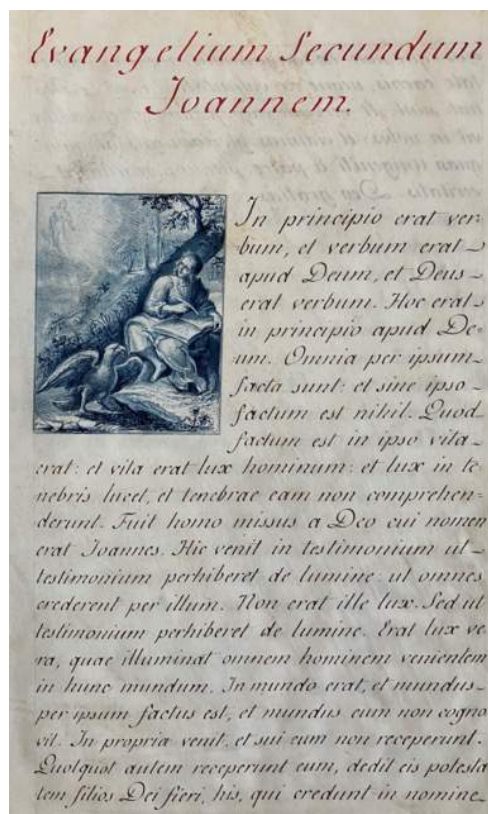 Evangelium Secundum
Joannem.
In principio erat ver
bum, et verbum erat
apud Deum, et Deus
erat verbum. Hoc erat
in principio apud De-
um. Omnia per ipsum
facta sunt: et sine ipso
factum est nihil. Quod
factum est in ipso vita
erat: et vita erat lux hominum: et lux in te
nebris lucet, et tenebrae eam non comprehen-
derunt. Fuit homo missus a Deo cui nomen
erat Joannes. Hic venit in testimonium ut
testimonium perhiberet de lumine: ut omnes
crederent per illum. Non erat ille lux. Sed ut
testimonium perhiberet de lumine. Erat lux ve
ra, quae illuminat omnem hominem venientem
in hunc mundum. In mundo erat, et mundus
per ipsum factus est, et mundus eum non cogno
vit. In propria venit, et sui eum non receperunt.
Quotquot autem receperunt eum, dedit eis potesta
tem filios Dei fieri, his, qui credunt in nomine